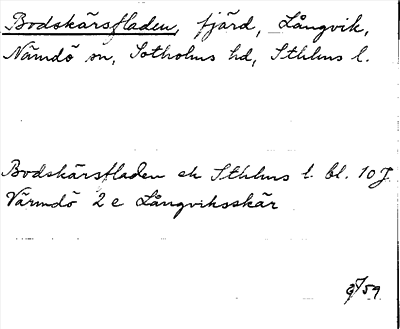 Bodskärsfladen, fjärd, Långvik,
Nämdö sn, Sotholms hd, Sthlms l.
Bodskärsfladen ek Sthlms l. bl. 10 J
Värmdö 2 e Långviksskär